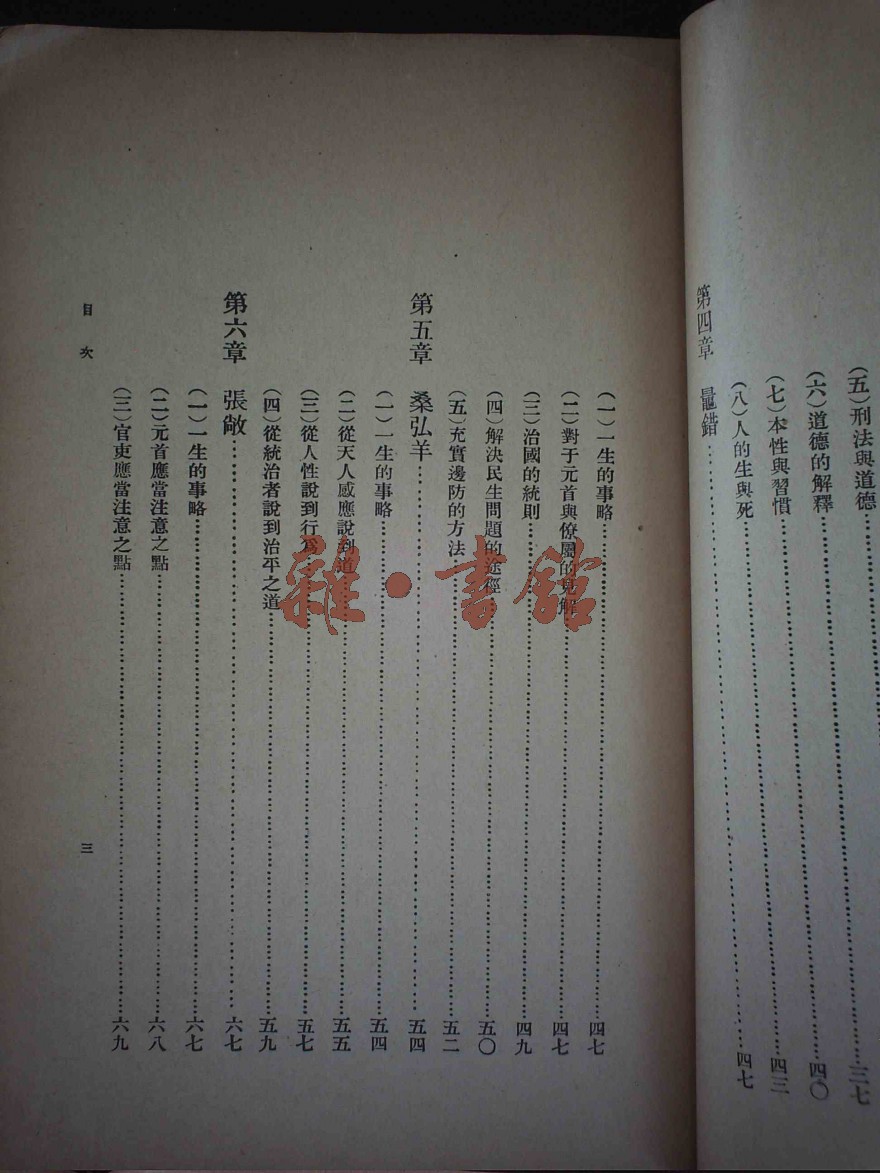 （五）刑法與道德……三七
（六）道德的解釋……四〇
（七）本性與習慣……四三
（八）人的生與死……四七
第四章　鼂錯……四七
（一）一生的事略……四七
（二）對于元首與僚屬的見解……四七
（三）治國的統則……四九
（四）解決民生問題的途徑……五〇
（五）充實邊防的方法……五二
第五章　桑弘羊……五四
（一）一生的事略……五四
（二）從天人感應說到道……五五
（三）從人性說到行爲……五七
（四）從統治者說到治平之道……五九
第六章　張敞……六七
（一）一生的事略……六七
（二）元首應當注意之點……六八
（三）官吏應當注意之點……六九
目次
三
雜·書館